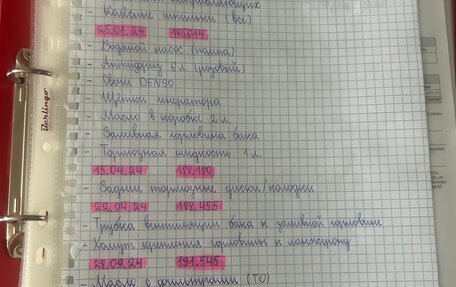 направляющих
- Колёсные шпильки (все)
25.01.24 185.014
- Водяной насос (помпа)
- Антифриз 6 л. (розовый)
- Свечи DENSO
- Щётки генератора
- Масло в коробке 2 л.
- Заливная горловина бака
- Тормозная жидкость 1 л.
15.04.24 188.180
- Задние тормозные диски/колодки
22.04.24 188.455
- Трубка вентиляции бака к заливной горловине
- Хомут крепления горловины к лонжерону
28.09.24 191.545
- Масло с фильтрами (ТО)
Berlingo